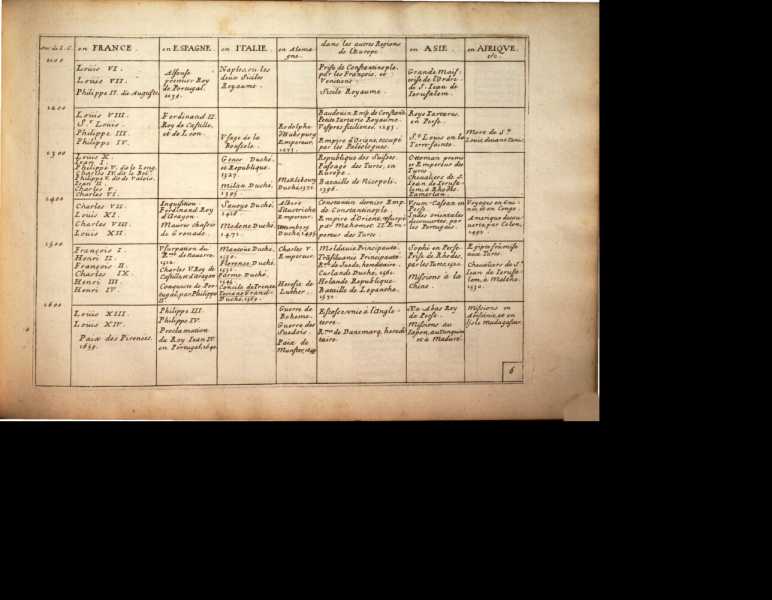 en FRANCE. en ESPAGNE. en ITALIE. en Alemagne. dans les autres Regions de l'Europe. en ASIE. en AFRIQVE. etc.
1100
Louis VI.
Louis VII.
Philippe II. dit Auguste.
Alfonse premier Roy de Portugal.
Naples, ou les deux Siciles Royaume.
Prise de Constantinople, par les François, et Venitiens.
Sicile Royaume.
Grande Maistrise de l'Ordre de S. Iean de Ierusalem.
1200
Louis VIII.
St. Louis.
Philippe III.
Philippe IV.
Ferdinand II. Roy de Castille, et de Leon.
Vsage de la Boussole.
Rodolphe d'Habspurg Empereur, 1273.
Petite Tartarie Royaume.
Vespres siciliennes, 1283.
Empire d'Orient occupé par les Paleologues.
Roys Tartares, en Perse.
St. Louis en la Terre-sainte.
Mort de St. Louis devant Tunis.
1300
Louis X.
Iean I.
Philippe V. dit le Long
Charles IV. dit le Bel.
Philippe V. dit de Valois.
Iean II.
Charles V.
Charles VI.
Genes Duché, et Republique. 1327.
Milan Duché, 1395.
Meklebourg Duché, 1371.
Republique des Suisses.
Passage des Turcs, en Europe.
Bataille de Nicopoli. 1396.
Ottoman premier Empereur des Turcs
Chevaliers de S. Iean de Ierusalem, à Rhodes.
Tamerlan.
1400
Charles VII.
Louis XI.
Charles VIII.
Louis XII.
Inquisition.
Ferdinand Roy d'Aragon
Maures chassez de Grenade.
Savoye Duché, 1416.
Modene Duché, 1471.
Albert d'Austriche Empereur.
Wirtberg Duché, 1495.
Constantin dernier Emp. de Constantinople.
Empire d'Orient, usurpé par Mahomet II. Empereur des Turcs.
Vsum-Cassan en Perse.
Indes orientales decouvertes, par les Portugais.
Voyages en Guinée, et en Congo.
Amerique decouverte par Colon, 1492.
1500
François I.
Henri II.
François II.
Charles IX.
Henri III.
Henri IV.
Vsurpation du Rme de Navarre. 1512.
Charles V. Roy de Castille, et d'Aragon
Conqueste de Portugal, par Philippe II.
Mantoue Duché, 1530.
Florence Duché, 1531.
Parme Duché, 1545.
Concile de Trente
Toscane Grand-Duché, 1569.
Charles V. Empereur.
Heresie de Luther.
Moldavie Principauté.
Transilvanie Principauté.
Rme de Suede, hereditaire.
Curlande Duché, 1561.
Holande Republique.
Bataille de Lepanthe, 1571.
Sophi en Perse.
Prise de Rhodes, par les Turcs, 1522.
Missions à la Chine.
Egipte soumise aux Turcs.
Chevaliers de St. Iean de Ierusalem, à Malthe. 1530.
1600
Louis XIII.
Louis XIV.
Paix des Pirenées. 1659.
Philippe III.
Philippe IV.
Proclamation du Roy Iean IV. en Portugal, 1640.
Guerre de Boheme.
Guerre des Suedois.
Paix de Munster, 1648
Ecosse unie à l'Angleterre.
Rme de Danemarq, hereditaire.
Xa Abas Roy de Perse.
Missions au Iapon, au Tunquin et à Maduré.
Missions en Abissinie, et en l'Isle Madagascar.
6